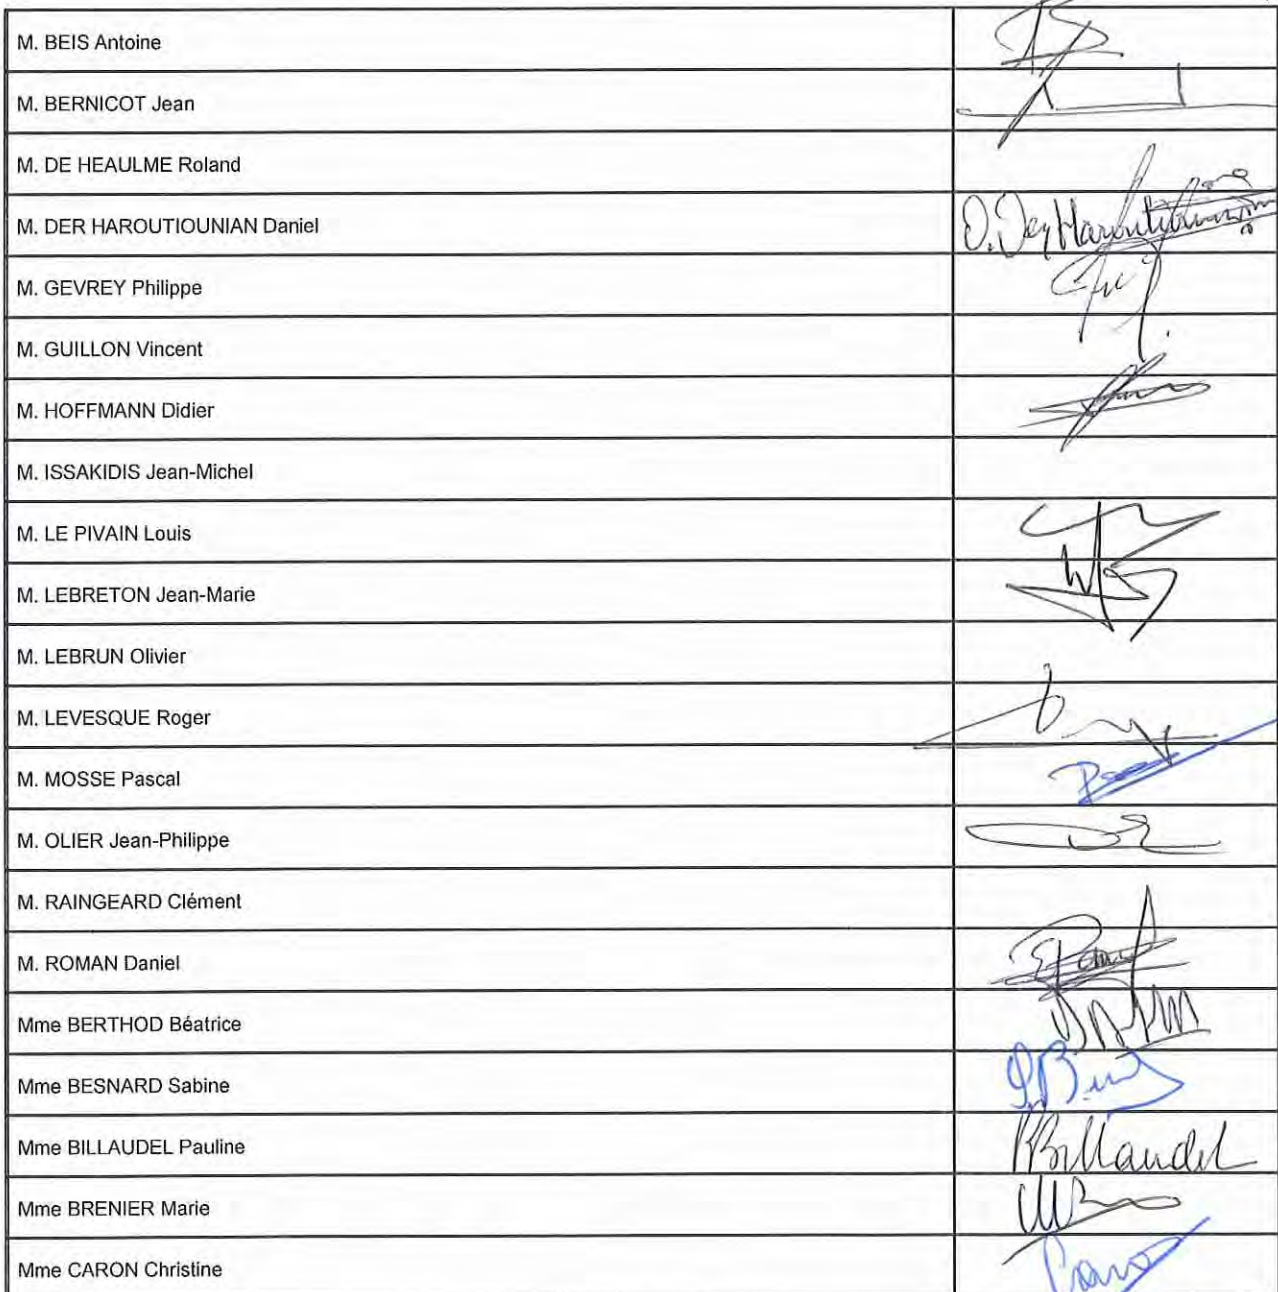 M. BEIS Antoine
M. BERNICOT Jean
M. DE HEAULME Roland
M. DER HAROUTIOUNIAN Daniel D. Der Haroutiounian
M. GEVREY Philippe
M. GUILLON Vincent
M. HOFFMANN Didier
M. ISSAKIDIS Jean-Michel
M. LE PIVAIN Louis
M. LEBRETON Jean-Marie
M. LEBRUN Olivier
M. LEVESQUE Roger
M. MOSSE Pascal
M. OLIER Jean-Philippe
M. RAINGEARD Clément
M. ROMAN Daniel
Mme BERTHOD Béatrice
Mme BESNARD Sabine
Mme BILLAUDEL Pauline PBillaudel
Mme BRENIER Marie
Mme CARON Christine